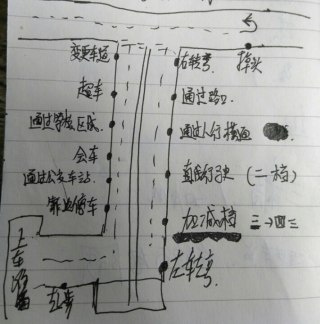 变更车道
超车
通过学校区域
会车
通过公交车站
靠边停车
上车准备
起步
掉头
右转弯
通过路口
通过人行横道
直线行驶 (二档)
加减档 二→四三
左转弯